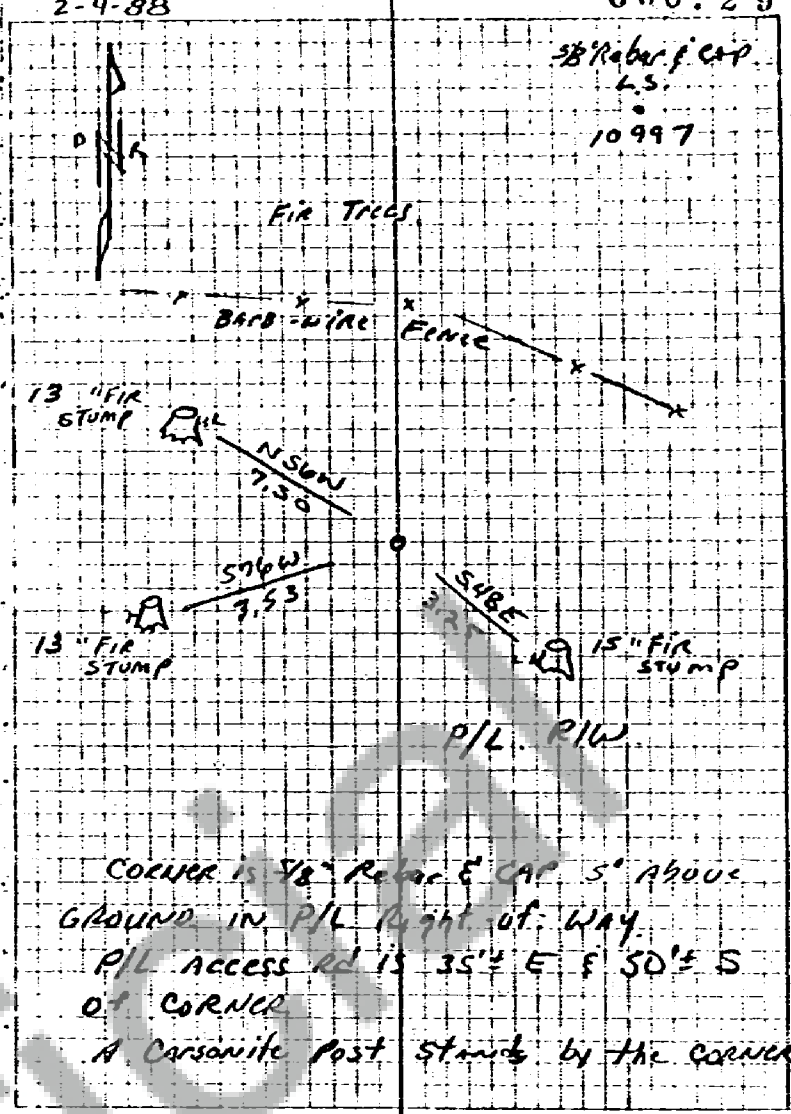 2-4-88
5/8" Rebar & CAP
L.S.
10997
FIR TREES
BARB-WIRE FENCE
13 "FIR
STUMP
N56W
7.30
S76W
3.53
13 "FIR
STUMP
S48E
3.25
15 "FIR
STUMP
P/L R/W
CORNER is 5/8" Rebar & CAP 5" Above
GROUND IN P/L Right of WAY.
P/L ACCESS Rd is 35'± E & 50'± S
Of CORNER
A Carsonite Post Stands by the CORNER